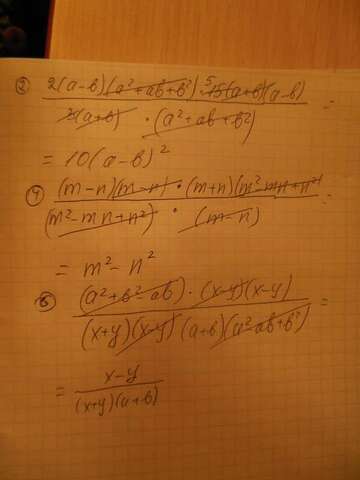 ② 2(a-b)(a²+ab+b²)·⁵15(a+b)(a-b) =
3(a+b) · (a²+ab+b²)
= 10(a-b)²
④ (m-n)(m-n)·(m+n)(m²-mn+n²) =
(m²-mn+n²) · (m-n)
= m²-n²
⑥ (a²+b²-ab)·(x-y)(x-y) =
(x+y)(x-y)(a+b)(a²-ab+b²)
= x-y
(x+y)(a+b)